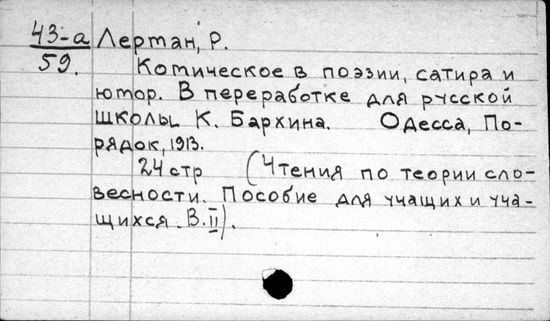 43-а Лерман, Р.
59.
Комическое в поэзии, сатира и
юмор. В переработке для русской
школы К. Бархина. Одесса, По-
рядок, 1913.
24 стр (Чтения по теории сло-
весности. Пособие для учащих и уча-
щихся. В.II).